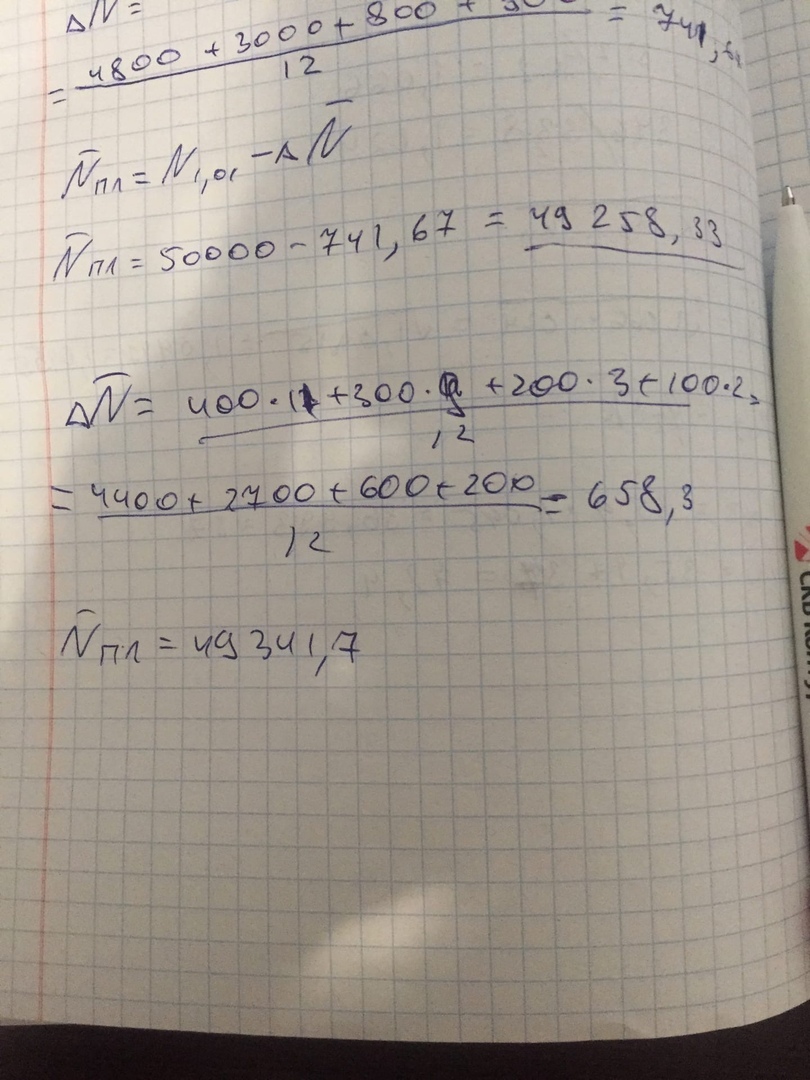 ΔN̄ =
= 4800 + 3000 + 800 + 300 / 12 = 741,67
N̄пл = N1,01 - ΔN̄
N̄пл = 50000 - 741,67 = 49 258,33
ΔN̄ = 400·11 + 300·9 + 200·3 + 100·2 / 12 =
= 4400 + 2700 + 600 + 200 / 12 = 658,3
N̄пл = 49 341,7
СКБ Контур